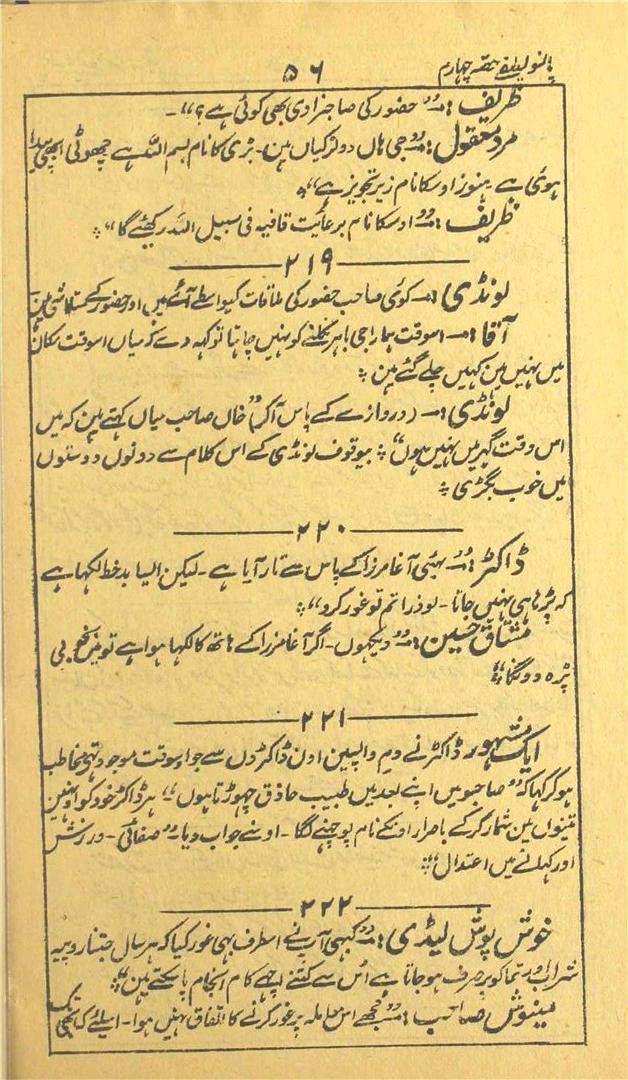 ۵۶
ظریف :۔ "حضور کی صاحبزادی بھی کوئی ہے؟"۔
مرد معقول :۔ "جی ہاں دو لڑکیاں ہین۔ بڑی کا نام بسم اللہ ہے چھوٹی ابھی پیدا
ہوئی ہے ہنوز اوسکا نام زیر تجویز ہے"
ظریف :۔ "اوسکا نام برعایت قافیہ فی سبیل اللہ رکھئے گا"
۲۱۹
لونڈی :۔ کوئی صاحب حضور کی ملاقات کیواسطے آئے ہیں اور حضور کے متلاشی ہین
آقا :۔ اسوقت ہمارا جی باہر نکلنے کو نہیں چاہتا تو کہہ دے کہ میاں اسوقت مکان
میں نہیں ہین کہیں چلے گئے ہین
لونڈی :۔ (دروازے کے پاس آکر) "خاں صاحب میاں کہتے ہین کہ میں
اس وقت گھر میں نہیں ہوں" بیوقوف لونڈی کے اس کلام سے دونوں دوستوں
میں خوب بگڑی
۲۲۰
ڈاکٹر :۔ "بھئی آغا مرزا کے پاس سے تار آیا ہے۔ لیکن ایسا بدخط لکھا ہے
کہ پڑھا ہی نہیں جاتا۔ لو ذرا تم تو غور کرو"
مشتاق حسین :۔ "دیکھوں۔ اگر آغا مرزا کے ہاتھ کا لکھا ہوا ہے تو میں بھی
پڑہ دونگا"
۲۲۱
ایک مشہور ڈاکٹر نے دم واپسین اون ڈاکٹروں سے جو اوسوقت موجود تھے مخاطب
ہو کر کہا کہ "صاحبو میں اپنے بعد تین طبیب حاذق چھوڑتا ہوں" ہر ڈاکٹر خود کو اونہین
تینوں مین شمار کر کے باصرار اونکے نام پوچھنے لگا۔ اوسنے جواب دیا۔ "صفائی۔ ورزش
اور کھانے میں اعتدال"
۲۲۲
خوش پوش لیڈی :۔ "کبھی آپ نے اسطرف بھی غور کیا کہ ہر سال جتنا روپیہ
شراب اور تماکو پر صرف ہو جاتا ہے اُس سے کتنے اچھے کام انجام پا سکتے ہین"
مینوش صاحب :۔ "مجھے اس معاملہ پر غور کرنے کا اتفاق نہیں ہوا۔ اسلئے کہ